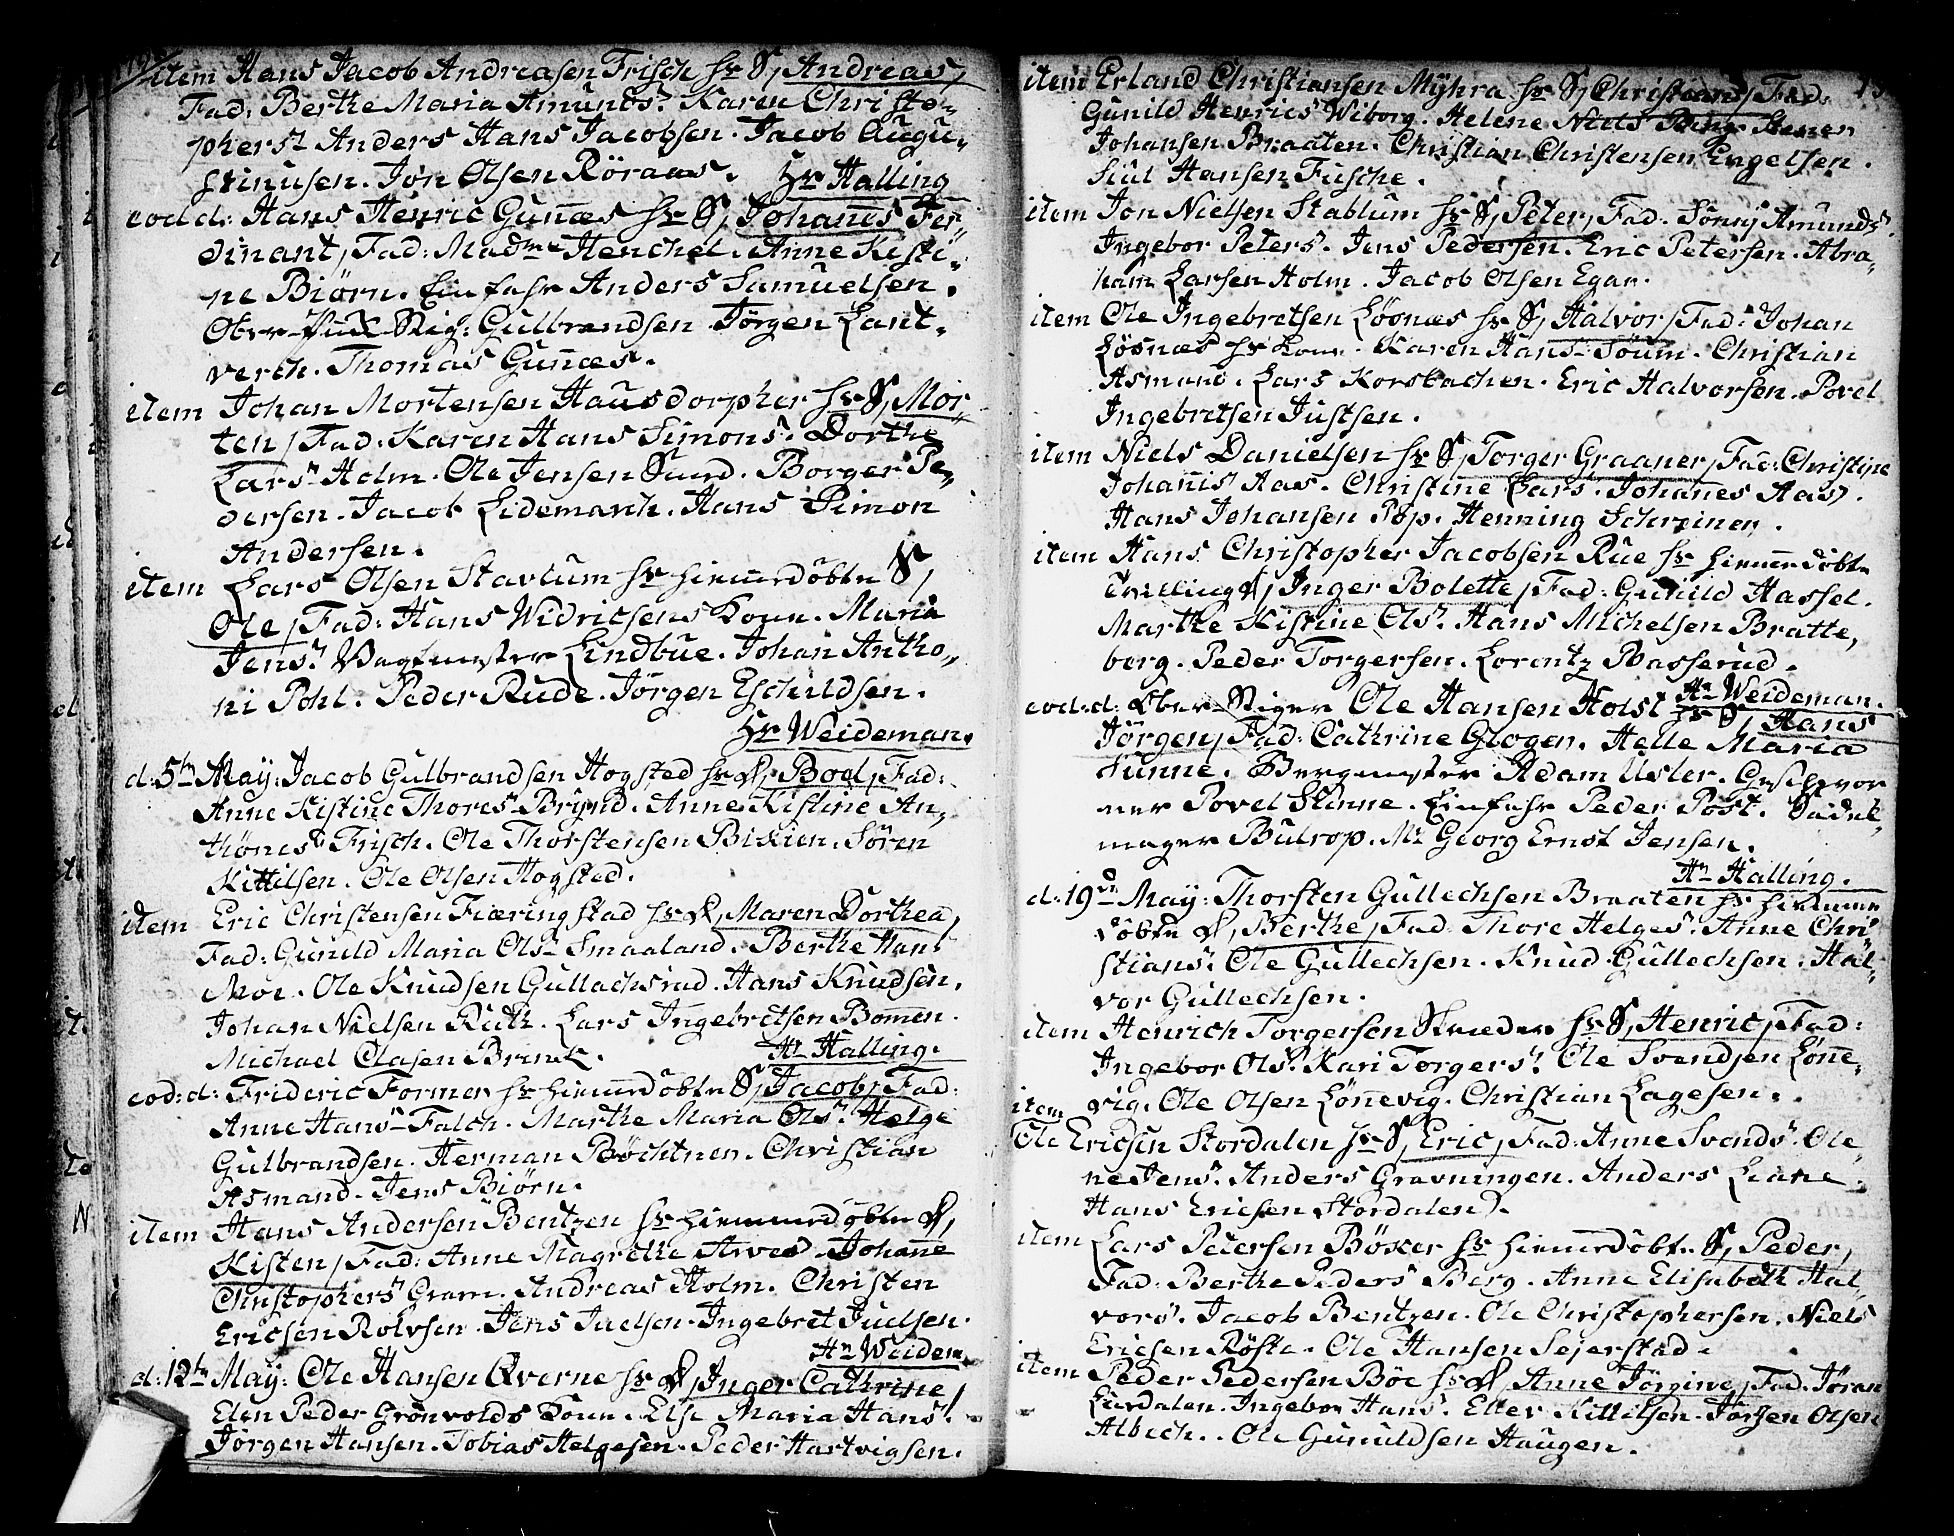 item Hans Jacob Andreasen Frisch hr S, Andreas,
Fad: Berthe Maria Amunds. Karen Christo-
phers. Anders Hans Jacobsen. Jacob Augu-
stinusen. Jon Olsen Röraas. Hr Halling
eod d: Hans Henric Guñæs hr S, Johañes Fer-
dinant, Fad: Madme Henchel. Anne Kisti-
ne Biörn. Einfahr Anders Samuelsen.
Ober Stig: Gulbrandsen. Jörgen Lant-
werch. Thomas Guñæs.
item Johan Mortensen Hausdorpher hr S, Mor-
ten, Fad: Karen Hans Simons. Dorthe
Lars Holm. Ole Jensen Sund. Borger Pe-
dersen. Jacob Lidemarch. Hans Simon
Andersen.
item Lars Olsen Stavlum hr hiemedöbte S,
Ole, Fad: Hans Widricsens Kone. Maria
Jens. Vagtmester Lindbüe. Johan Antho-
ni Pohl. Peder Rude. Jörgen Eschildsen.
Hr Weideman.
d: 5te May: Jacob Gulbrandsen Hogsted hr D, Boel, Fad:
Anne Kistine Thores Brynd. Anne Kistine An-
thönes Frisch. Ole Thorstensen Bikien. Sören
Kittilsen. Ole Olsen Hogsted.
item Eric Christensen Fiæringstad hr D, Maren Dorthea,
Fad: Gunild Maria Ols Smaaland. Berthe Hans
Moe. Ole Knudsen Gullachsrud. Hans Knudsen.
Johan Nielsen Ruth. Lars Ingebretsen Bommen.
Michael Clasen Brinck. Hr Halling.
eod: d: Frideric Former hr hiemedöbte S, Jacob, Fad:
Anne Hans Falch. Marthe Maria Ols. Helge
Gulbrandsen. Herman Böchtner. Christian
Asmand. Jens Biörn.
item Hans Andersen Bentzen hr hiemmedöbte D,
Kisten, Fad: Anne Magrethe Arved. Johañe
Christophers Gram. Andreas Holm. Christen
Ericsen Rolvsen. Jens Juelsen. Ingebret Juelsen.
Hr Weidem.
d: 12te May: Ole Hansen Qverne hr D, Inger Cathrine,
Elen Peder Grönvolds Kone. Else Maria Hans.
Jörgen Hansen. Tobias Helgesen. Peder Hartvigsen.
item Erland Christiansen Myhra hr S, Christian, Fad:
Gunild Henrics Wiborg. Helene Niels Berg. Stener
Johansen Braaten. Christian Christensen Engelsen.
Siul Hansen Fusche.
item Jon Nielsen Stablum hr S, Peter, Fad: Sönnj Amunds.
Ingebor Peters. Jens Pedersen. Eric Petersen. Abra-
ham Larsen Holm. Jacob Olsen Egar.
item Ole Ingebretsen Löönæs hr S, Halvor, Fad: Johan
Lösnæs hs Kone. Karen Hans Söum. Christian
Asmand. Lars Korsbachen. Eric Halvorsen. Povel
Ingebretsen Justsen.
item Niels Danielsen hr S, Torger Graaner, Fad: Christine
Johañis Aas. Christine Lars. Johañes Aas.
Hans Johansen Pop. Henning Schreiner.
item Hans Christopher Jacobsen Rue hr hiemedöbte
Tvilling D, Inger Bolette, Fad: Gunild Hassel.
Marthe Kistine Ols. Hans Michelsen Bratte-
berg. Peder Torgersen. Lorentz Basserud.
Hr Weideman.
eod: d: Ober-Stiger Ole Hansen Holst hr S, Hans
Jörgen, Fad: Cathrine Gloger. Helle Maria
Sunne. Bergmester Adam Usler. Geschwor
ner Povel Stinne. Einfahr Peder Post. Sadel-
mager Butrop. Mr Georg Ernst Jensen.
Hr Halling.
d: 19de May: Thorsten Gullechsen Braaten hr hiemme
döbte D, Berthe, Fad: Thore Helges. Anne Chri-
stians. Ole Gullechsen. Knud Gullechsen. Hal-
vor Gullechsen.
item Henrich Torgersen Skreder hr S, Henric, Fad:
Ingebor Ols. Kari Torgers. Ole Svendsen Löñe-
vig. Ole Olsen Löñevig. Christian Lagesen.
item
Ole Ericsen Stordalen hr S, Eric, Fad: Anne Svends. Ole-
ne Jens. Anders Gravningen. Anders Liane.
Hans Ericsen Stordalen.
item Lars Petersen Böxer hr hiemedöbte S, Peder,
Fad: Berthe Peders Berg. Anne Elisabeth Hal-
vors. Jacob Bentzen. Ole Christophersen. Niels
Ericsen Röste. Ole Hansen Sejerstad.
item Peder Pedersen Böe hr D, Anne Jörgine, Fad: Jöran
Lurdalen. Ingebor Hans. Eller Kittilsen. Jörgen Olsen
Albech. Ole Gunuldsen Haugen.